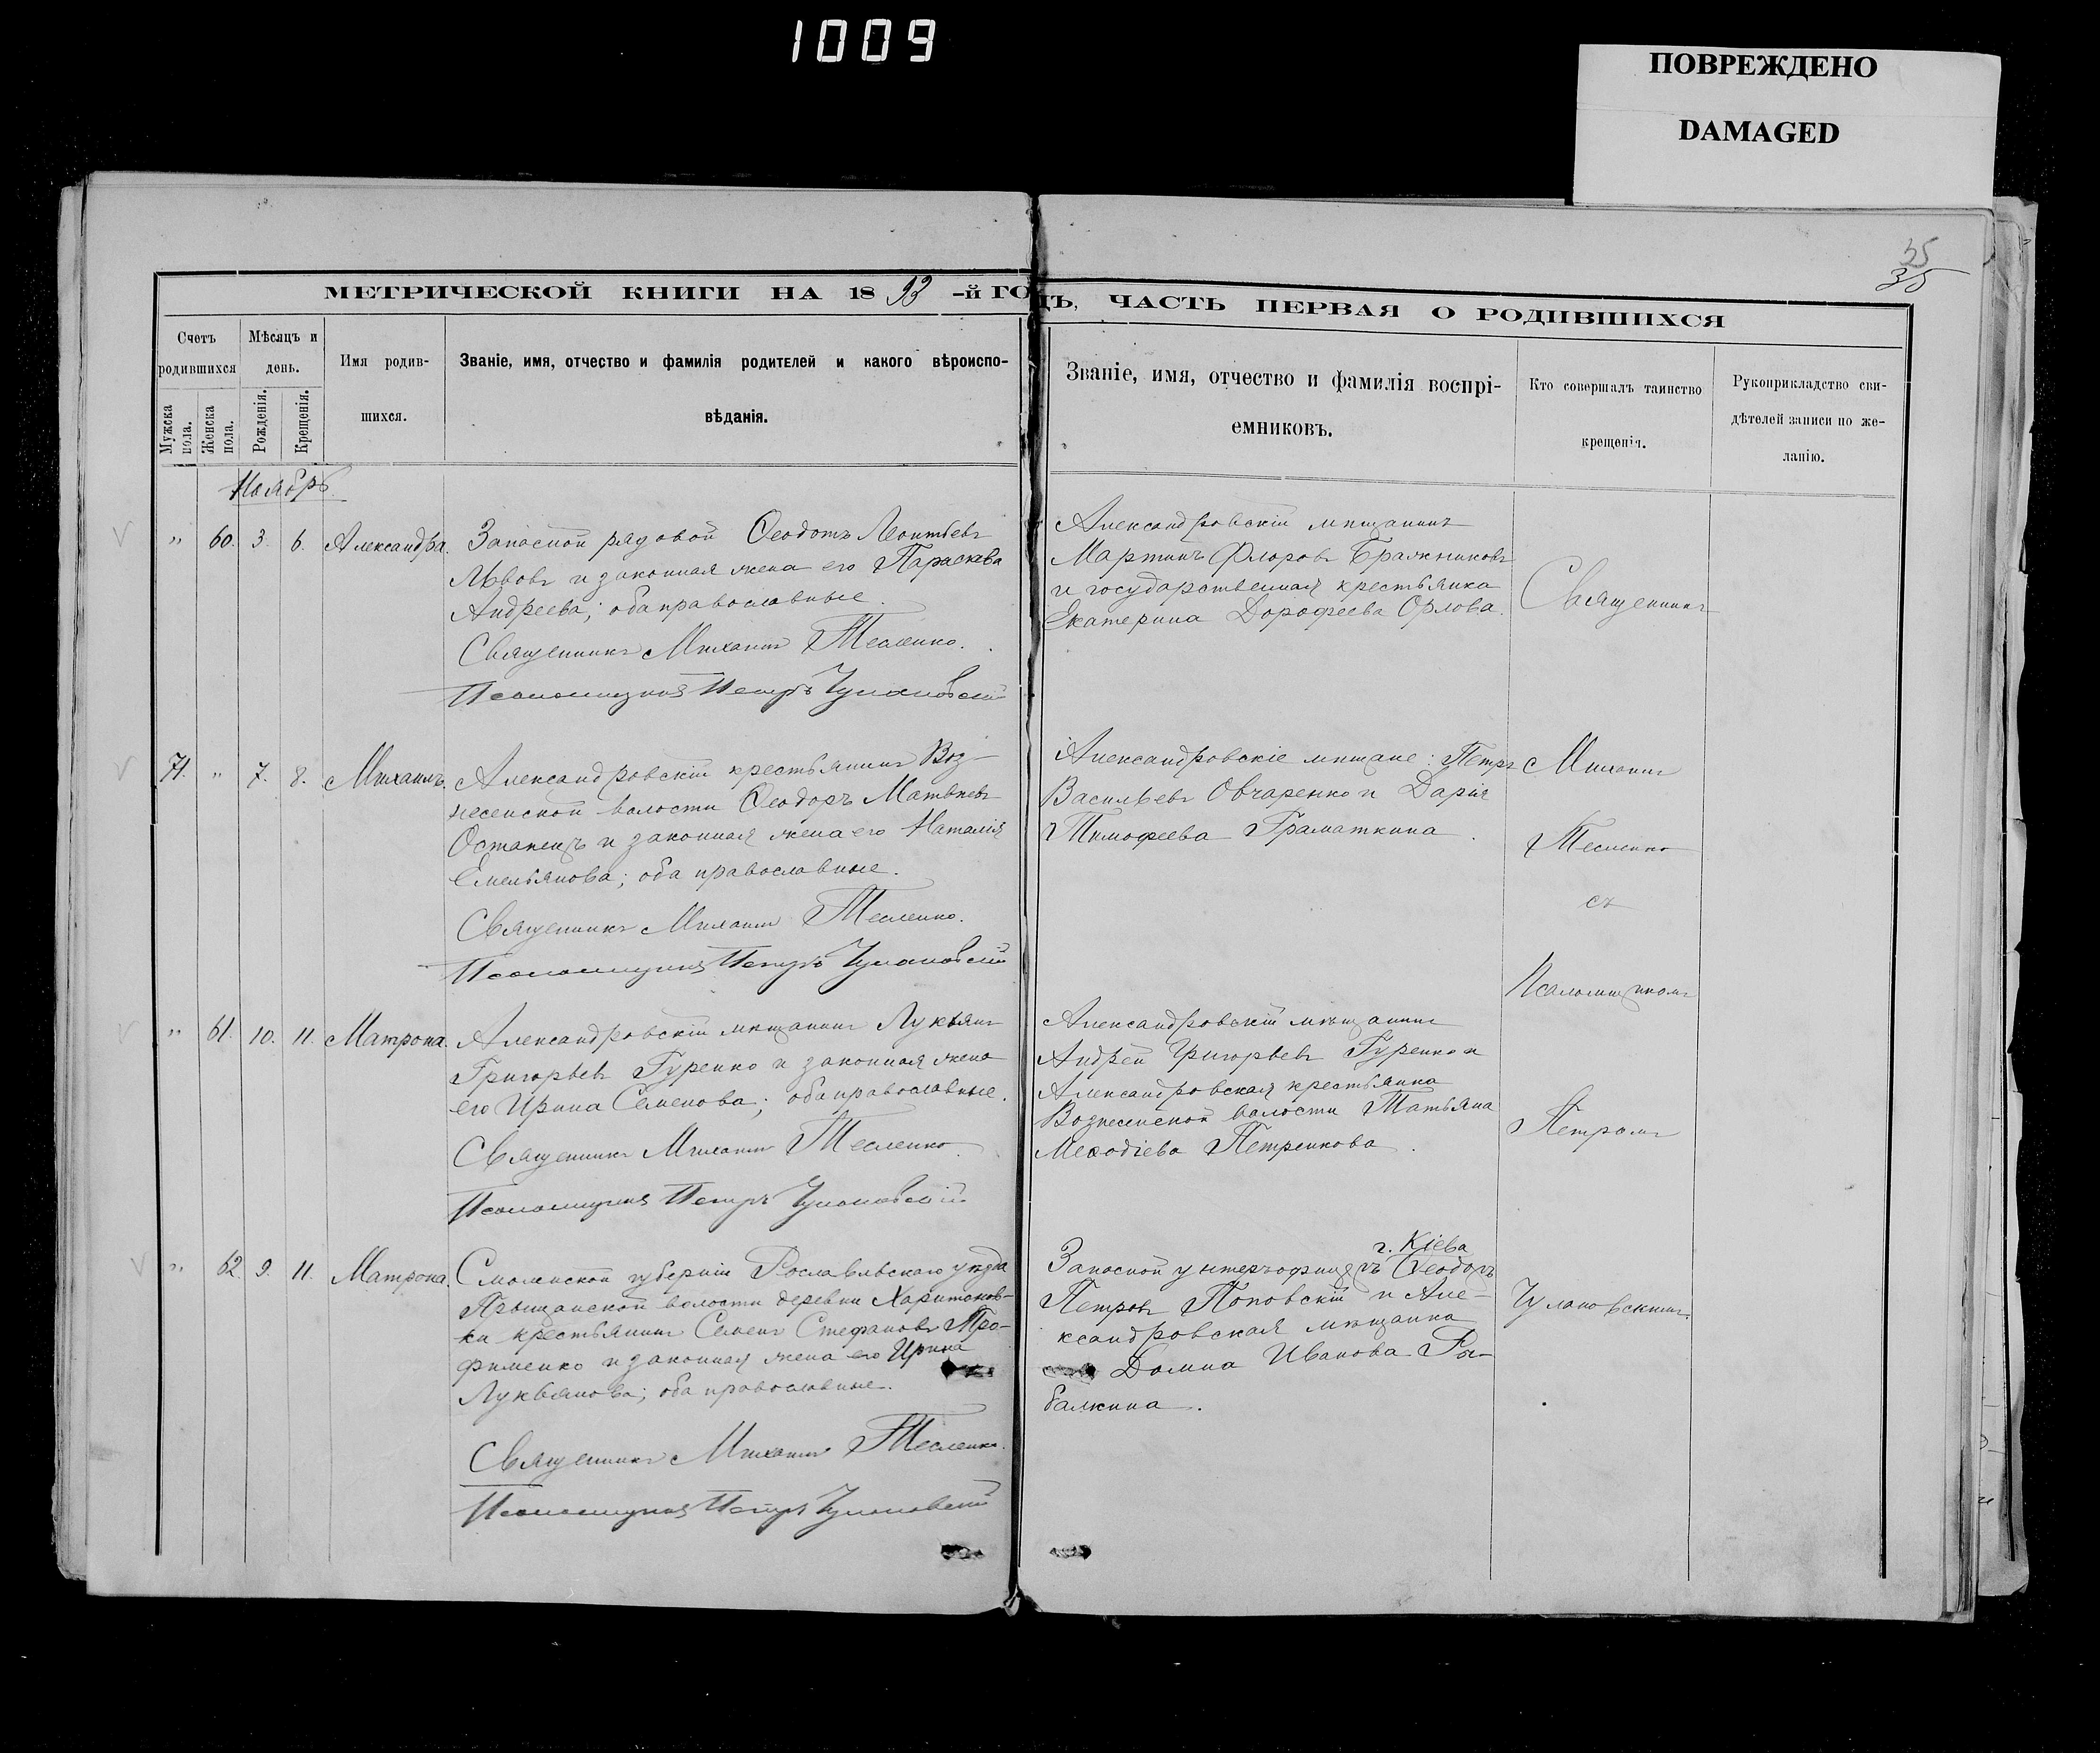 1009
ПОВРЕЖДЕНО
DAMAGED
35
35
МЕТРИЧЕСКОЙ КНИГИ НА 1893-й ГОДЪ, ЧАСТЬ ПЕРВАЯ О РОДИВШИХСЯ
Счетъ родившихся
Мужска пола.
Женска пола.
Мѣсяцъ и день.
Рожденія.
Крещенія.
Имя родив-
шихся.
Званіе, имя, отчество и фамилія родителей и какого вѣроиспо-
вѣданія.
Званіе, имя, отчество и фамилія воспрі-
емниковъ.
Кто совершалъ таинство
крещенія.
Рукоприкладство сви-
дѣтелей записи по же-
ланію.
Ноябрь
" 60. 3. 6. Александра.
Запасной рядовой Ѳеодотъ Леонтьевъ
Львовъ и законная жена его Параскева
Андреева; оба православные.
Священникъ Михаилъ Тесленко.
Псаломщикъ Петръ Чулановскій
Александровскій мѣщанинъ
Мартинъ Флоровъ Бражниковъ
и государственная крестьянка
Екатерина Дорофеева Орлова.
Священникъ
71. " 7. 8. Михаилъ.
Александровскій крестьянинъ Воз-
несенской волости Ѳеодоръ Матвѣевъ
Остапецъ и законная жена его Наталія
Емельянова; оба православные.
Священникъ Михаилъ Тесленко.
Псаломщикъ Петръ Чулановскій
Александровскіе мѣщане: Петръ
Васильевъ Овчаренко и Дарія
Тимофеева Граматкина.
Михаилъ
Тесленко
съ
Псаломщикомъ
" 61. 10. 11. Матрона.
Александровскій мѣщанинъ Лукьянъ
Григорьевъ Гуренко и законная жена
его Ирина Семенова; оба православные.
Священникъ Михаилъ Тесленко.
Псаломщикъ Петръ Чулановскій
Александровскій мѣщанинъ
Андрей Григорьевъ Гуренко и
Александровская крестьянка
Вознесенской волости Татьяна
Меѳодіева Петренкова.
Петромъ
" 62. 9. 11. Матрона
Смоленской губерніи Рославльскаго уѣзда
волости деревни Харитонов-
ки крестьянинъ Семенъ Стефановъ Тро-
фименко и законная жена его Ирина
Лукьянова; оба православные.
Священникъ Михаилъ Тесленко.
Псаломщикъ Петръ Чулановскій
г. Кіева
Запасной унтеръ-офицеръ Ѳеодоръ
Петровъ Поповскій и Але-
ксандровская мѣщанка
Домна Иванова Ры-
балкина.
Чулановскимъ.